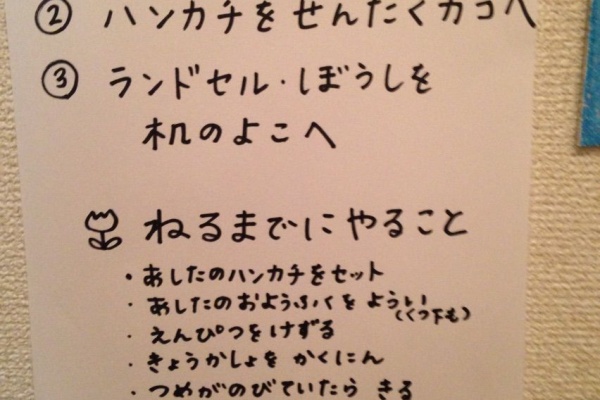 ② ハンカチを せんたくカゴへ
③ ランドセル・ぼうしを
机のよこへ
ねるまでにやること
・あしたのハンカチをセット
・あしたのおようふくを ようい
(くつ下も)
・えんぴつをけずる
・きょうかしょを かくにん
・つめがのびていたら きる